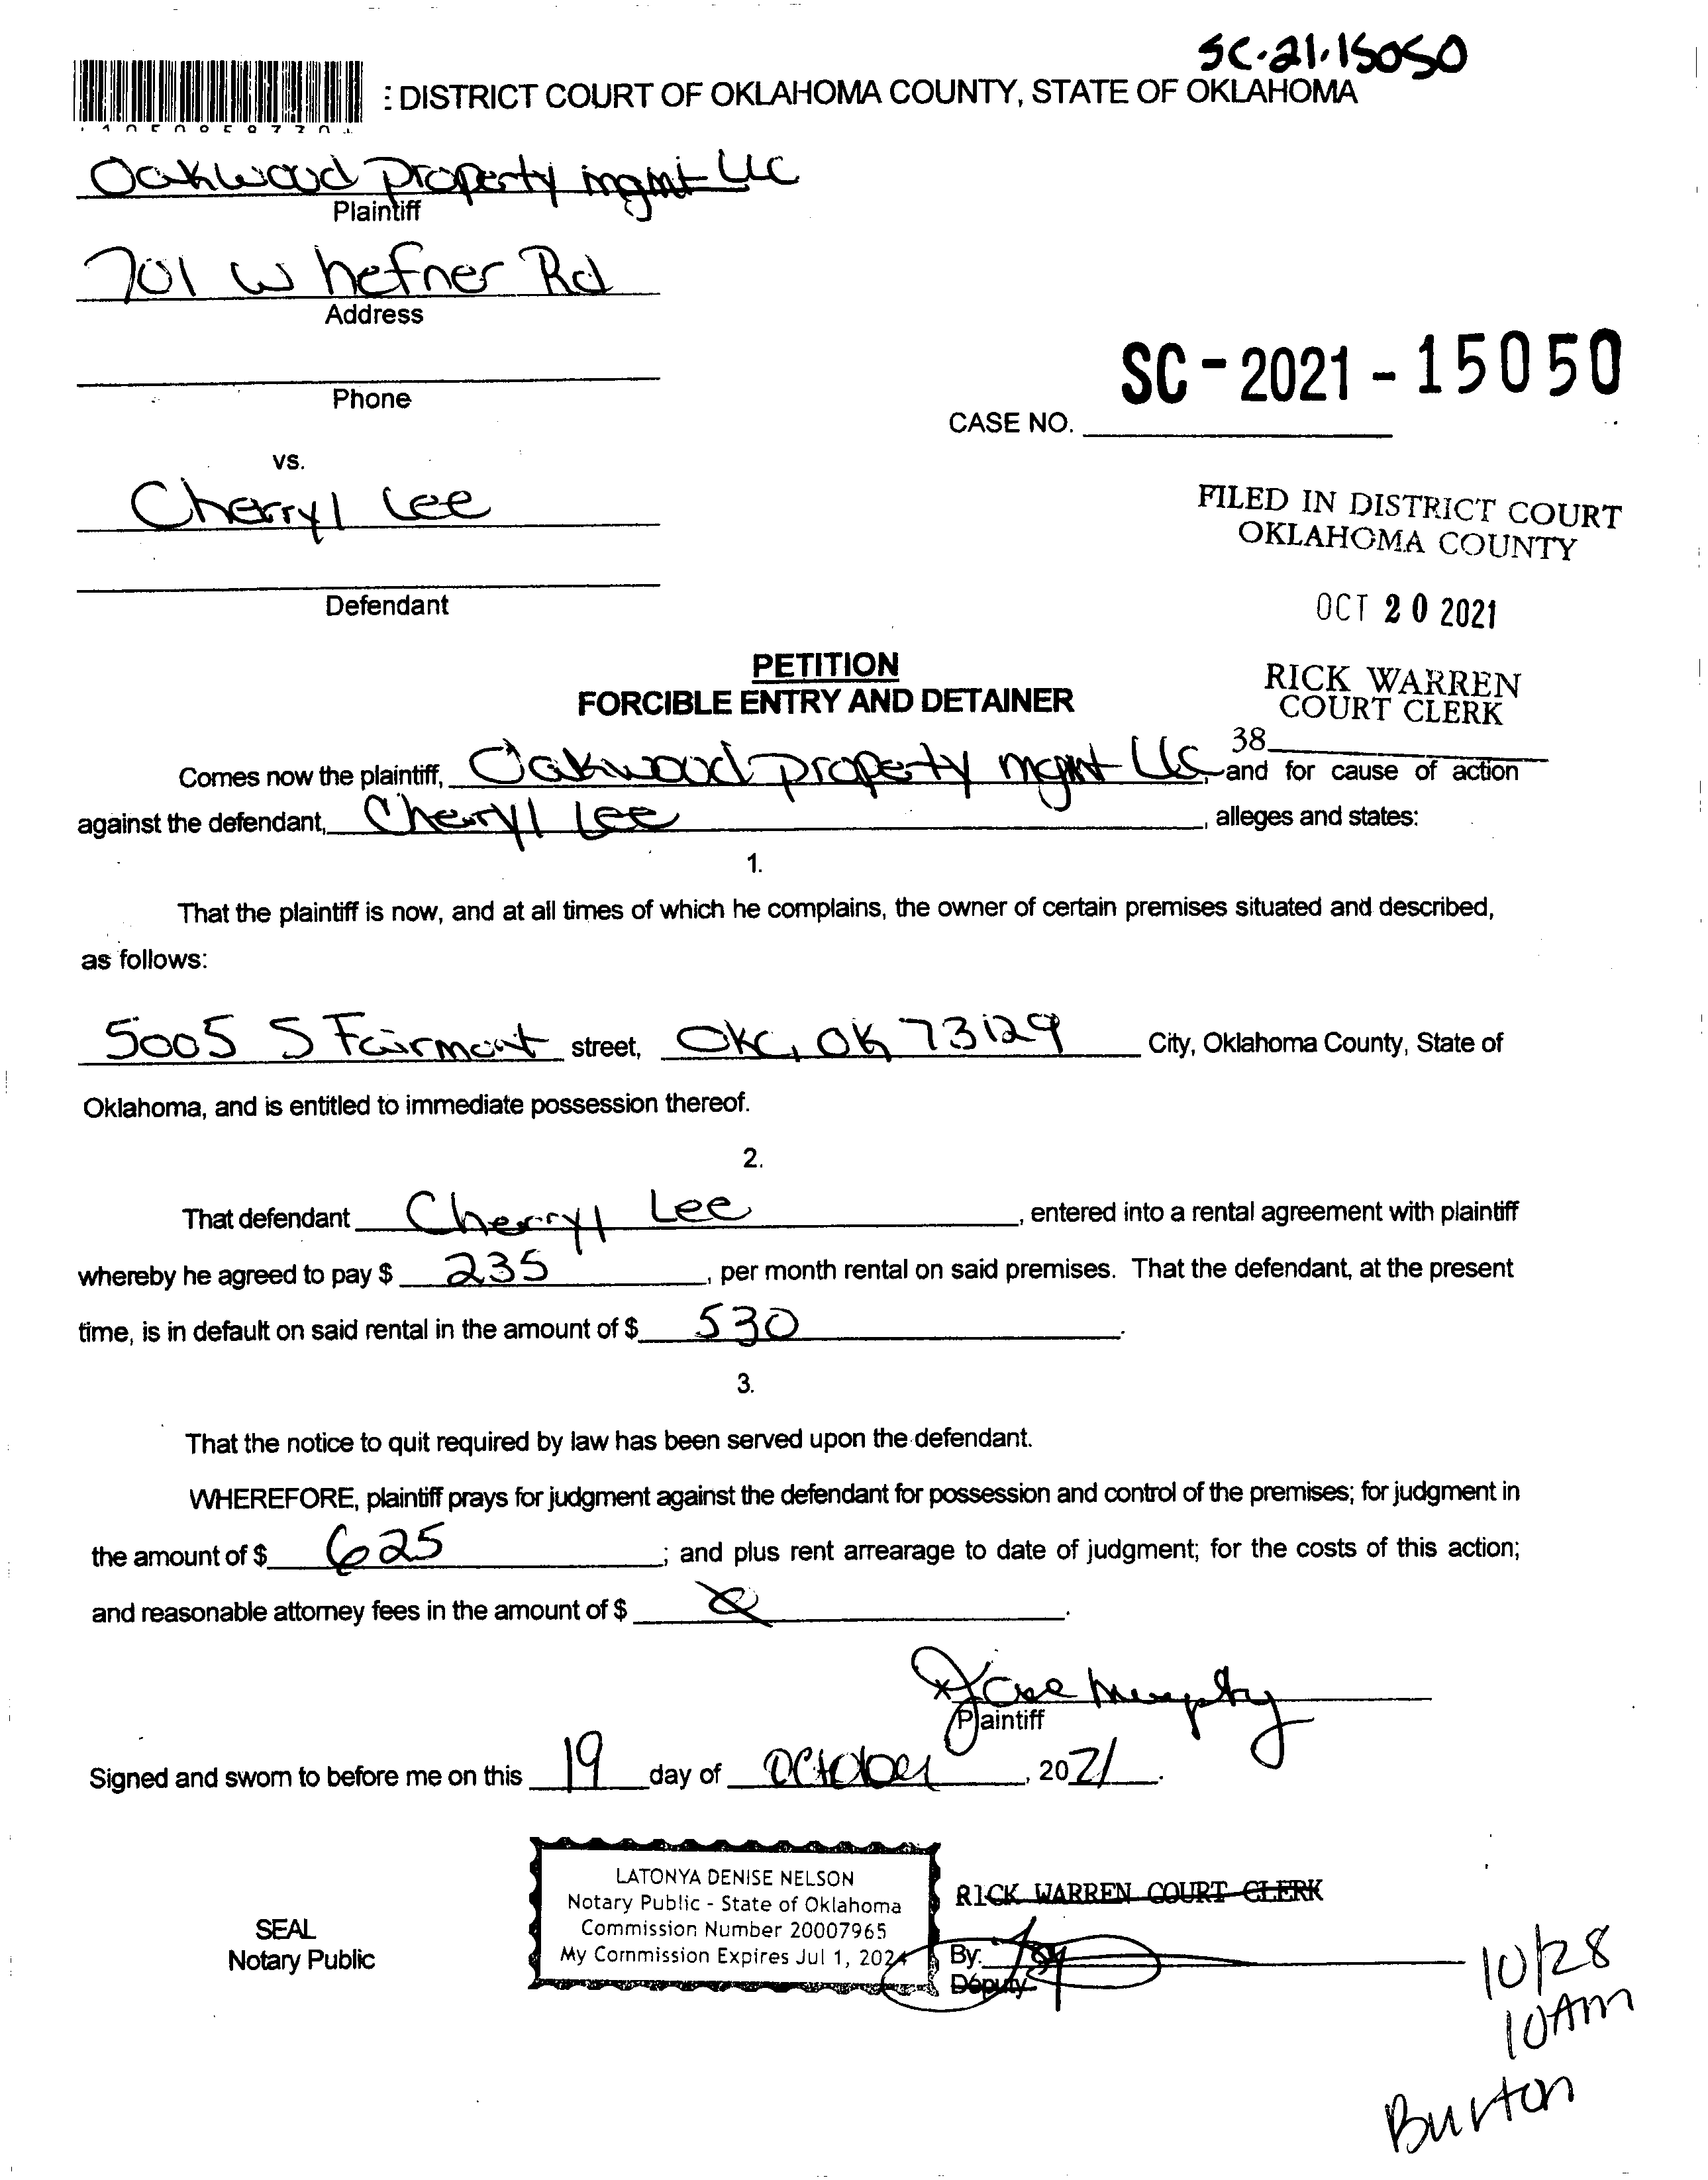 SC-21-15050
: DISTRICT COURT OF OKLAHOMA COUNTY, STATE OF OKLAHOMA
Oakwood property mgmt LLC
Plaintiff
701 W hefner Rd
Address
Phone
SC-2021-15050
CASE NO.
vs.
Cherryl Lee
Defendant
FILED IN DISTRICT COURT
OKLAHOMA COUNTY
OCT 20 2021
RICK WARREN
COURT CLERK
38
PETITION
FORCIBLE ENTRY AND DETAINER
Comes now the plaintiff, Oakwood property mgmt LLC, and for cause of action
against the defendant, Cherryl Lee, alleges and states:
1.
That the plaintiff is now, and at all times of which he complains, the owner of certain premises situated and described,
as follows:
5005 S Fairmont street, OKC, OK 73129 City, Oklahoma County, State of
Oklahoma, and is entitled to immediate possession thereof.
2.
That defendant Cherryl Lee, entered into a rental agreement with plaintiff
whereby he agreed to pay $ 235, per month rental on said premises. That the defendant, at the present
time, is in default on said rental in the amount of $ 530.
3.
That the notice to quit required by law has been served upon the defendant.
WHEREFORE, plaintiff prays for judgment against the defendant for possession and control of the premises; for judgment in
the amount of $ 625; and plus rent arrearage to date of judgment; for the costs of this action;
and reasonable attorney fees in the amount of $ .
Murphy
Plaintiff
Signed and sworn to before me on this 19 day of October, 2021.
LATONYA DENISE NELSON
Notary Public - State of Oklahoma
Commission Number 20007965
My Commission Expires Jul 1, 2024
SEAL
Notary Public
RICK WARREN COURT CLERK
By:
Deputy
10/28
10Am
Burton